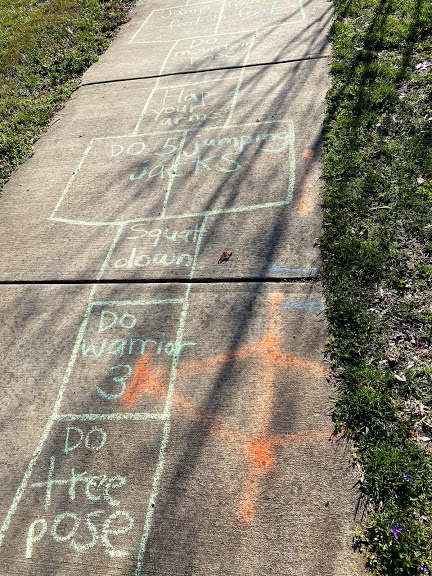 Do
Flap
your
arms
DO 5 jumping
jacks
Squat
down
Do
warrior
3
DO
tree
pose